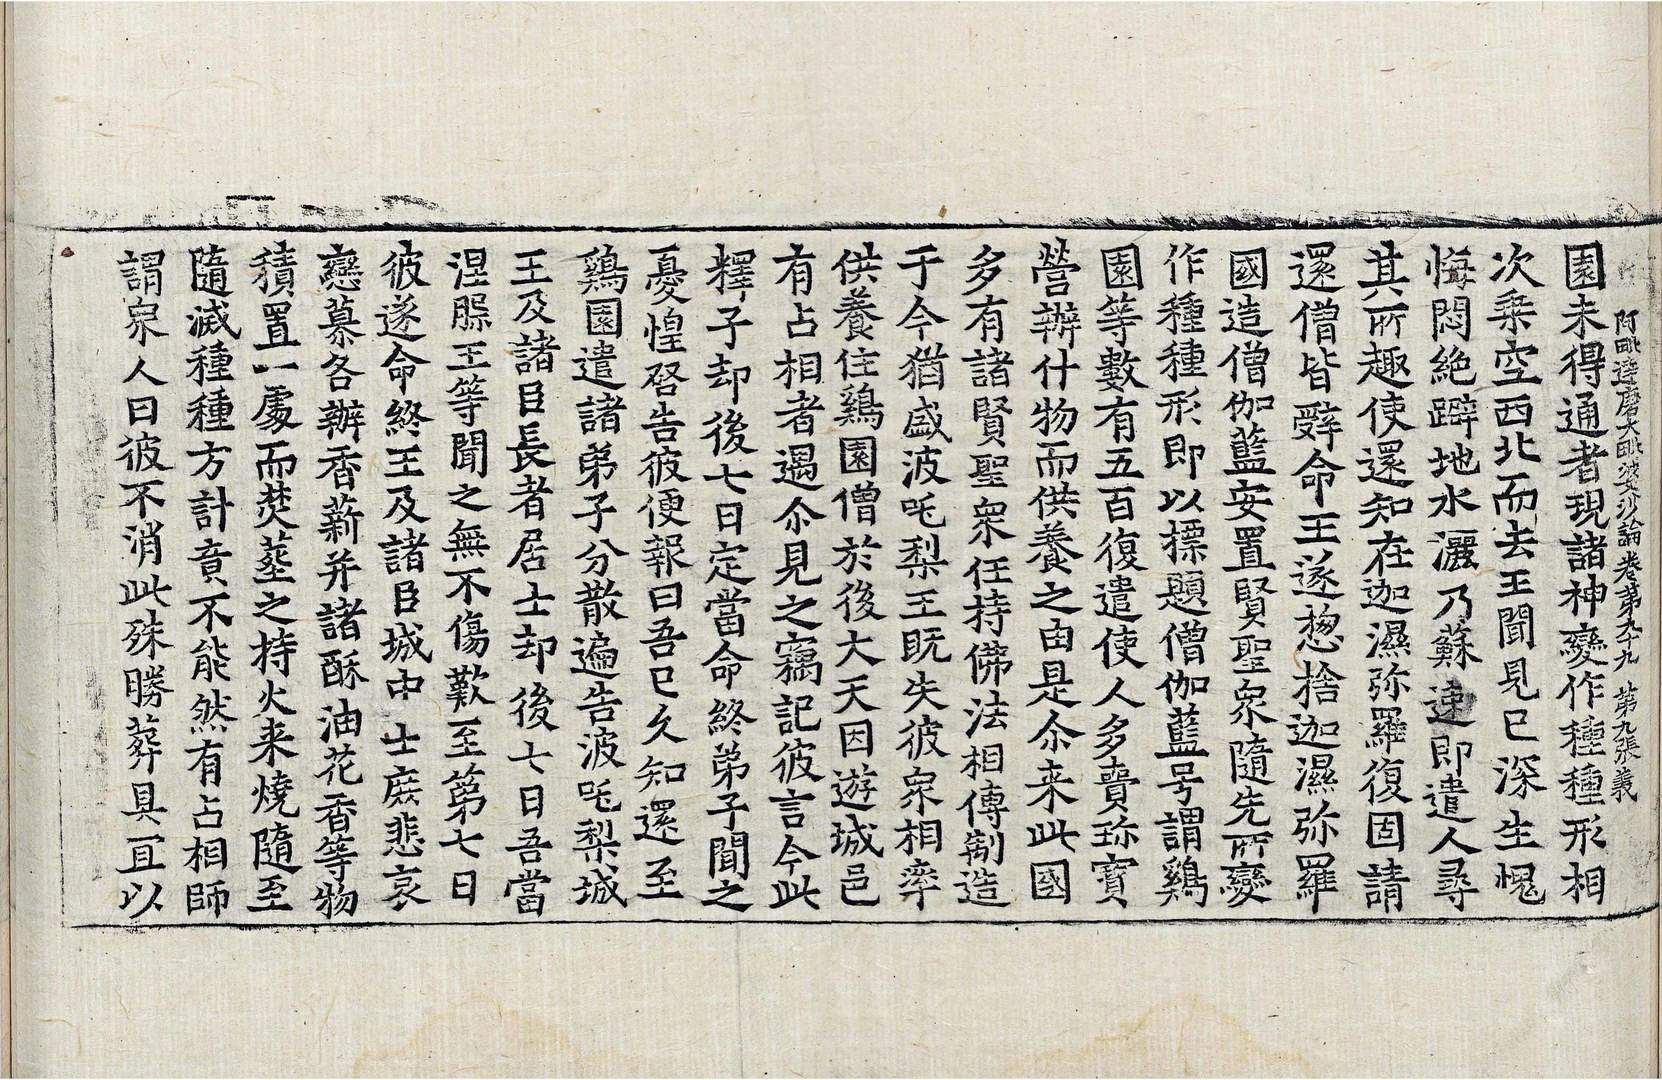 阿毗達磨大毗婆沙論卷第九十九 第九張 義
園未得通者現諸神變作種種形相
次乗空西北而去王聞見已深生愧
悔悶絶躃地水灑乃蘇速即遣人尋
其所趣使還知在迦濕弥羅復固請
還僧皆辭命王遂揔捨迦濕弥羅
國造僧伽藍安置賢聖衆隨先所變
作種種形即以摽題僧伽藍号謂鷄
園等數有五百復遣使人多賫珎寳
營辦什物而供養之由是尒来此國
多有諸賢聖衆任持佛法相傳制造
于今猶盛波吒梨王既失彼衆相率
供養住鷄園僧於後大天因遊城邑
有占相者遇尒見之竊記彼言今此
釋子却後七日定當命終弟子聞之
憂惶啓告彼便報曰吾已久知還至
鷄園遣諸弟子分散遍告波吒梨城
王及諸臣長者居士却後七日吾當
涅槃王等聞之無不傷歎至第七日
彼遂命終王及諸臣城中士庶悲哀
戀慕各辦香薪并諸酥油花香等物
積置一處而焚葬之持火来燒隨至
隨滅種種方計竟不能然有占相師
謂衆人曰彼不消此殊勝葬具冝以